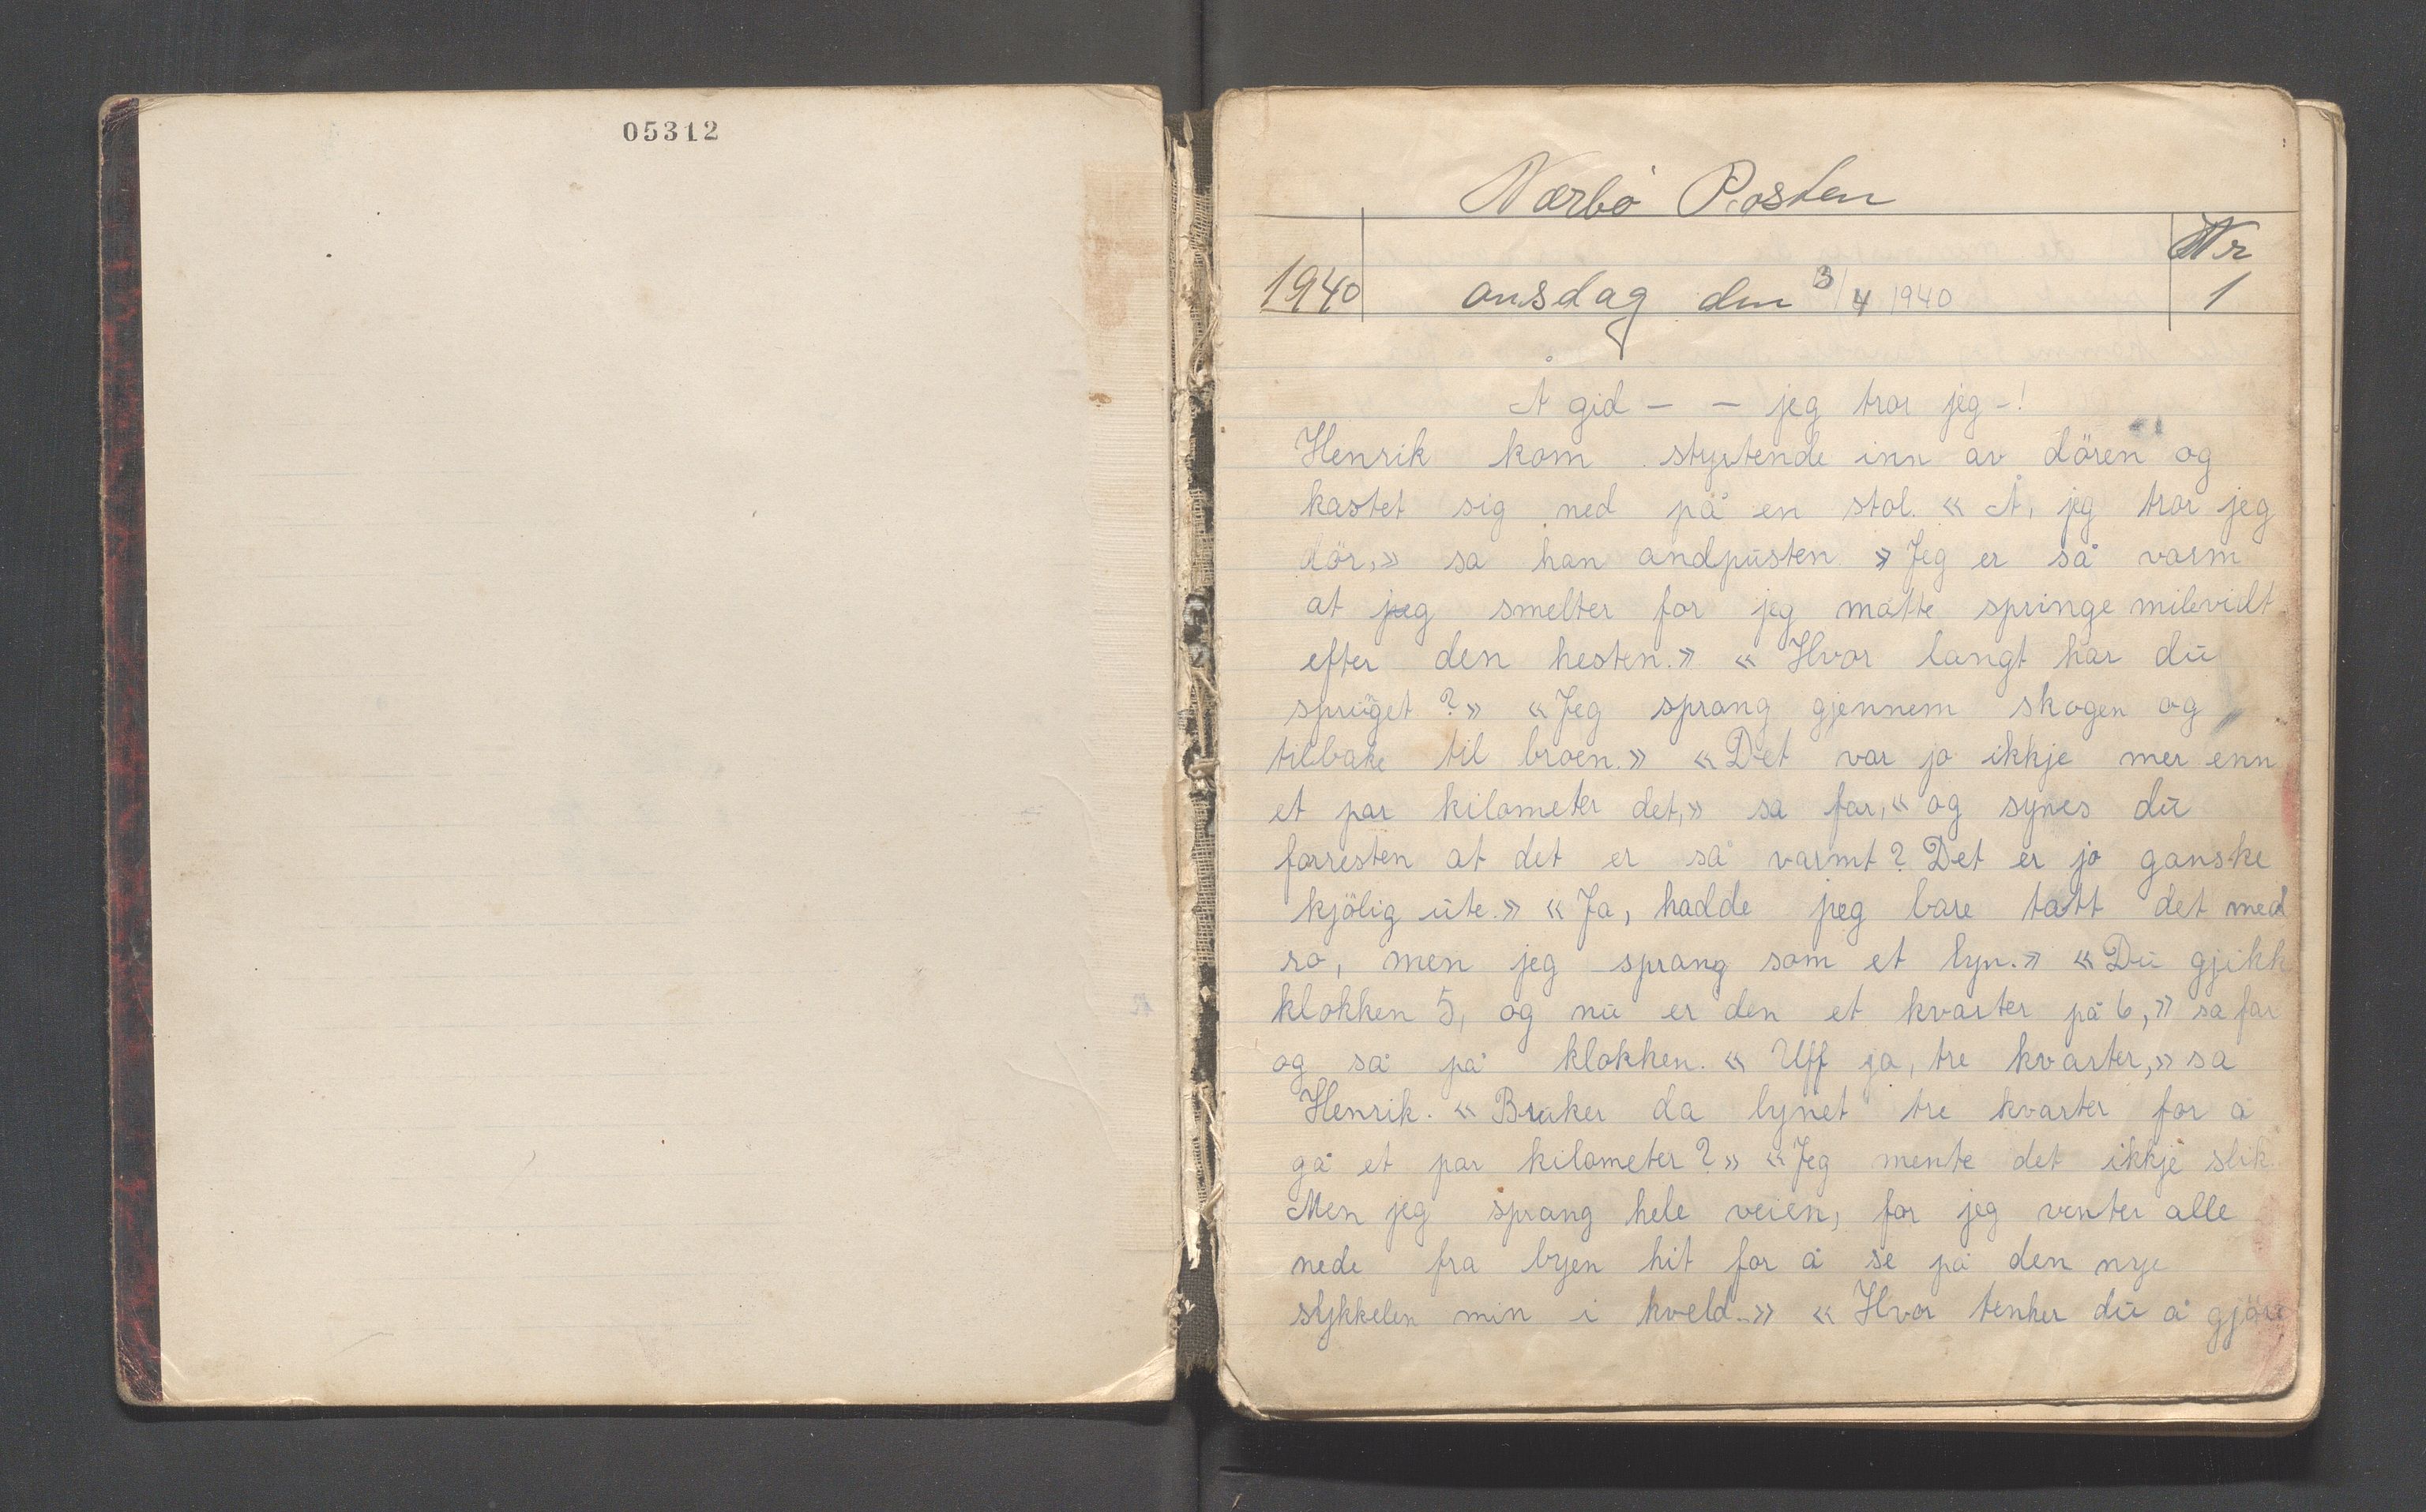 05312
Nærbö Posten
Nr
1940 onsdag den 3/4 1940 1
Å gid - - jeg tror jeg -!
Henrik kom styrtende inn av dören og
kastet sig ned på en stol. « Å, jeg tror jeg
dör,» sa han andpusten. » Jeg er så varm
at jeg smelter for jeg måtte springe milevidt
efter den hesten.» « Hvor langt har du
sprüget ?» « Jeg sprang gjennem skogen og
tilbake til broen.» « Det var jo ikkje mer enn
et par kilometer det,» sa far, « og synes du
forresten at det er så varmt ? Det er jo ganske
kjölig ute.» « Ja, hadde jeg bare tatt det med
ro, men jeg sprang som et lyn.» « Du gjikk
klokken 5, og nu er den et kvarter på 6,» sa far
og så på klokken. « Uff ja, tre kvarter,» sa
Henrik. « Bruker da lynet tre kvarter for å
gå et par kilometer ?» « Jeg mente det ikkje slik.
Men jeg sprang hele veien, for jeg venter alle
nede fra byen hit for å se på den nye
sykkelen min i kveld.» « Hvor tenker du å gjöre